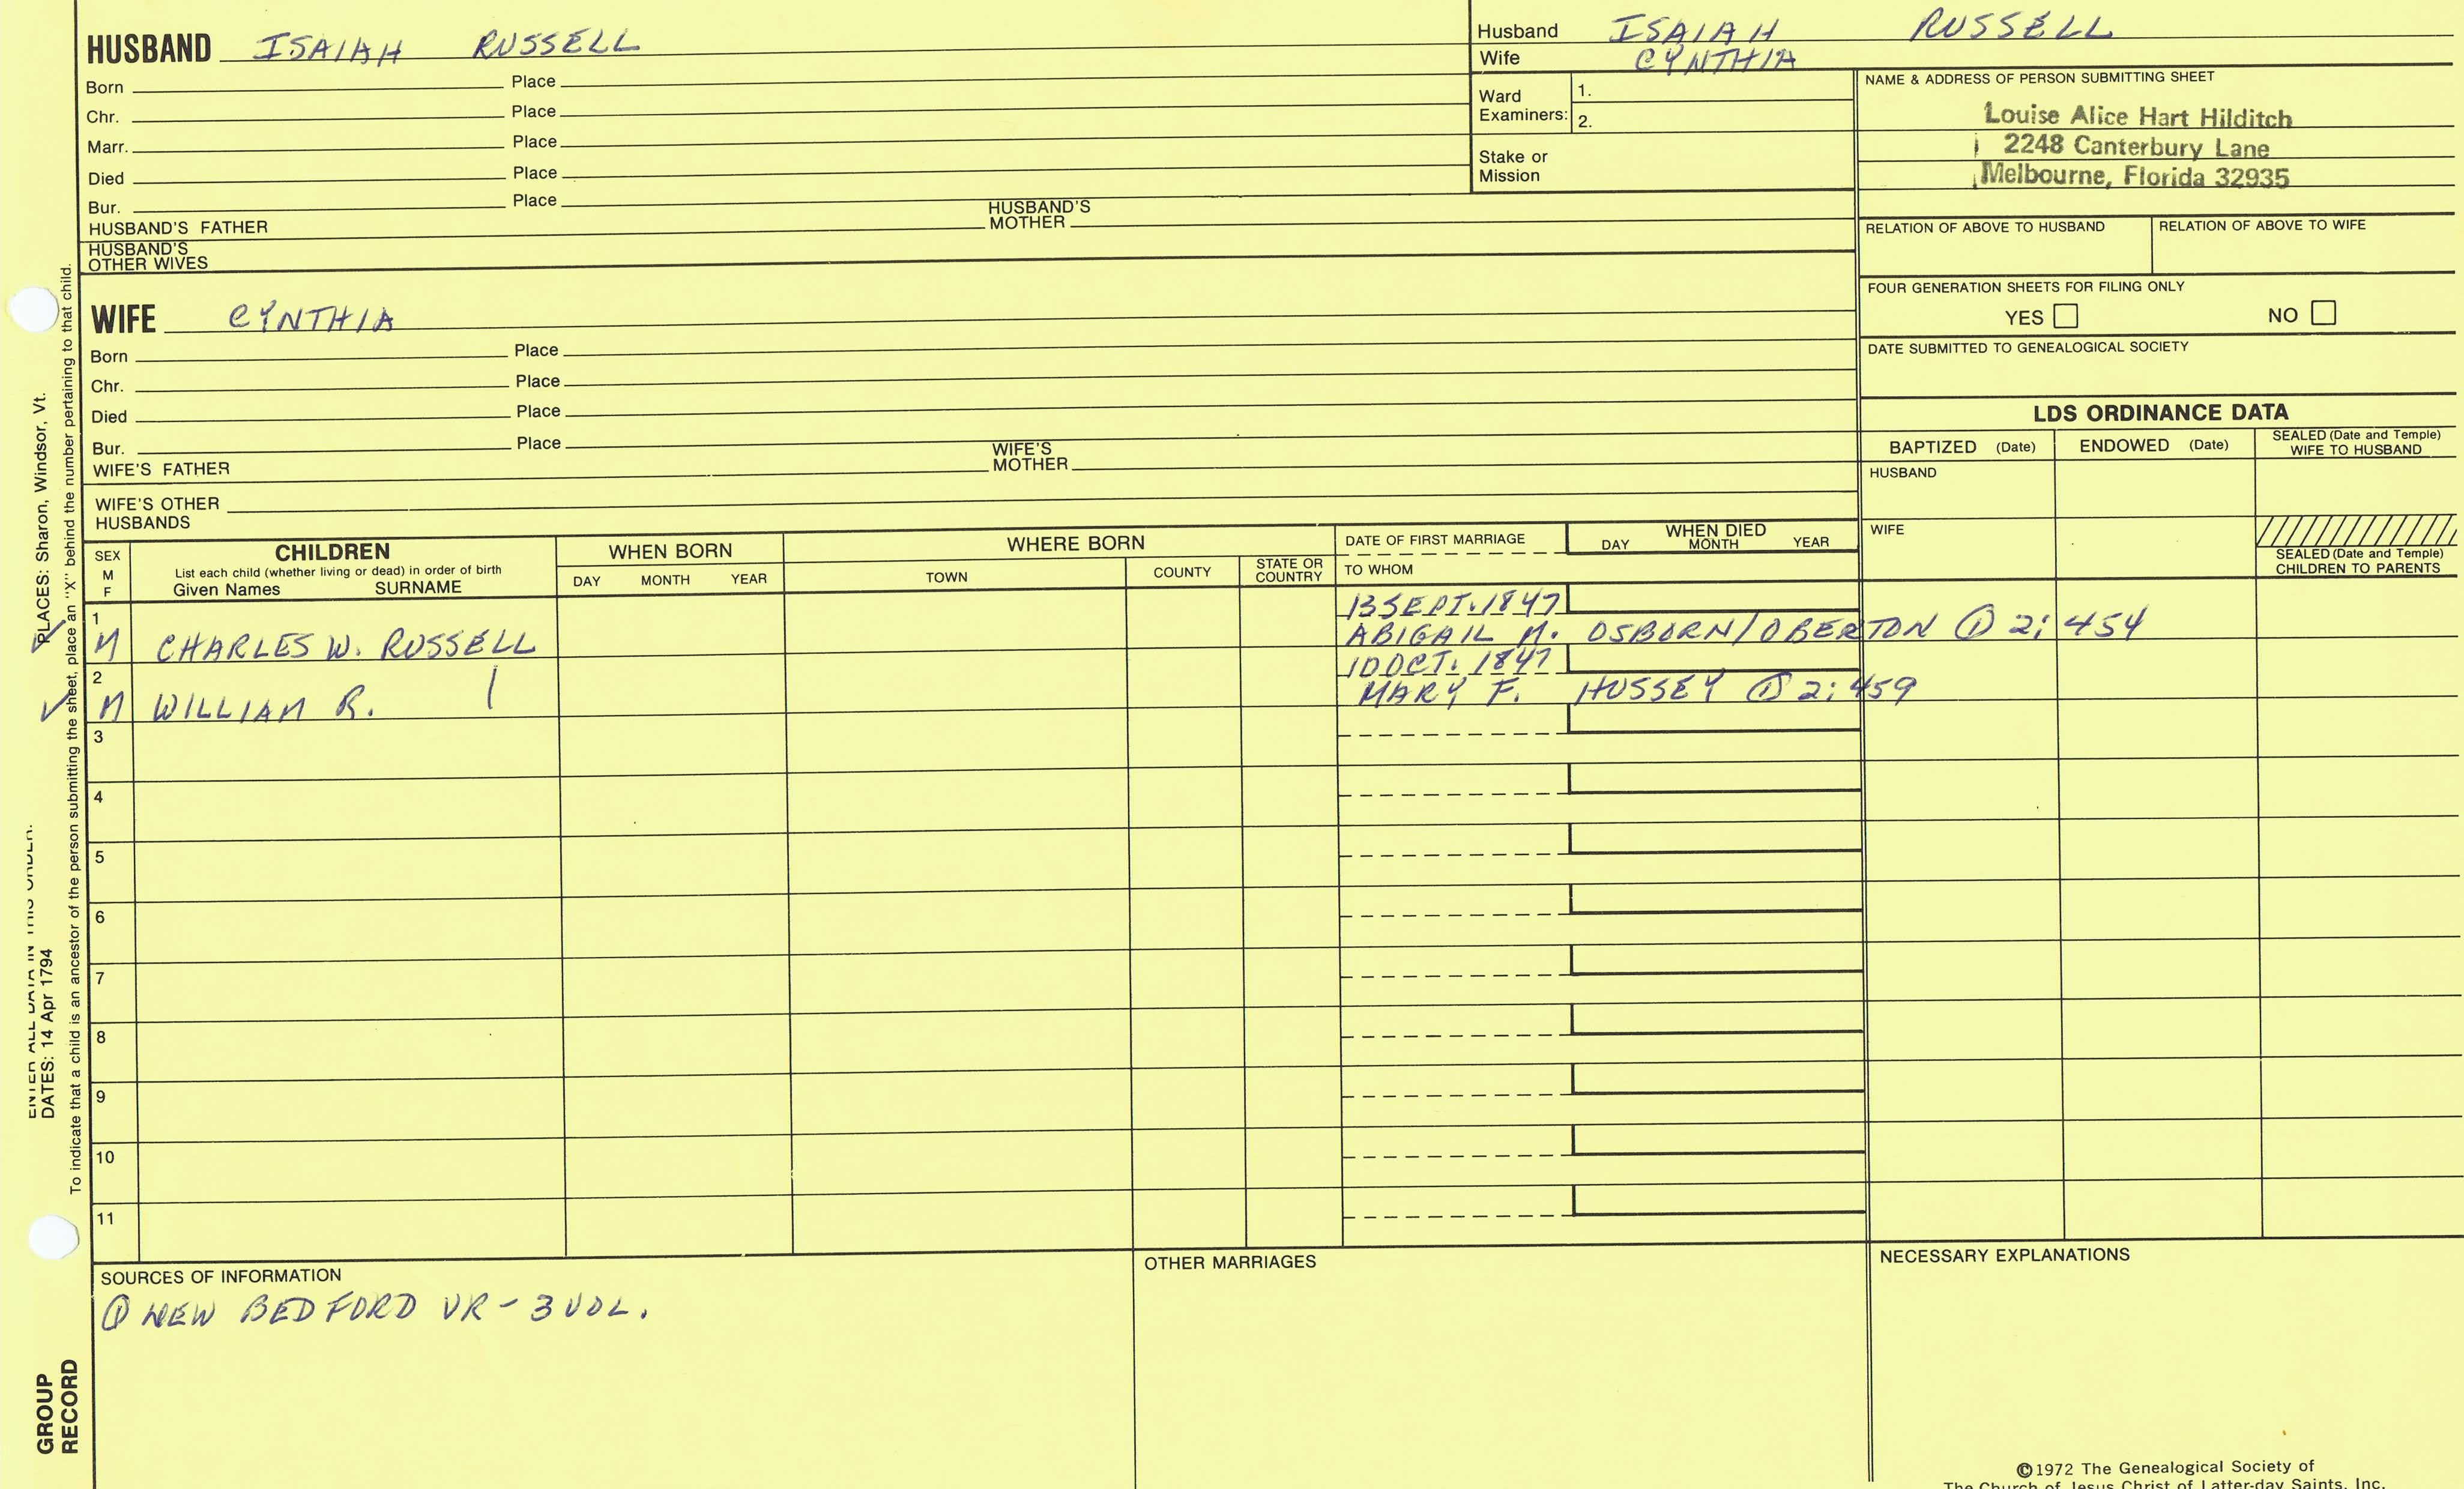 HUSBAND ISAIAH RUSSELL
Born Place
Chr. Place
Marr. Place
Died Place
Bur. Place
HUSBAND'S FATHER HUSBAND'S MOTHER
HUSBAND'S OTHER WIVES
Husband ISAIAH RUSSELL
Wife CYNTHIA
Ward Examiners: 1.
2.
Stake or Mission
NAME & ADDRESS OF PERSON SUBMITTING SHEET
Louise Alice Hart Hilditch
2248 Canterbury Lane
Melbourne, Florida 32935
RELATION OF ABOVE TO HUSBAND RELATION OF ABOVE TO WIFE
FOUR GENERATION SHEETS FOR FILING ONLY
YES NO
DATE SUBMITTED TO GENEALOGICAL SOCIETY
WIFE CYNTHIA
Born Place
Chr. Place
Died Place
Bur. Place
WIFE'S FATHER WIFE'S MOTHER
WIFE'S OTHER HUSBANDS
LDS ORDINANCE DATA
BAPTIZED (Date) ENDOWED (Date) SEALED (Date and Temple) WIFE TO HUSBAND
HUSBAND
WIFE
SEALED (Date and Temple) CHILDREN TO PARENTS
SEX M F
CHILDREN
List each child (whether living or dead) in order of birth
Given Names SURNAME
WHEN BORN
DAY MONTH YEAR
WHERE BORN
TOWN COUNTY STATE OR COUNTRY
DATE OF FIRST MARRIAGE
TO WHOM
WHEN DIED
DAY MONTH YEAR
1 13 SEPT. 1847
M CHARLES W. RUSSELL ABIGAIL M. OSBORN/OBERTON ① 2: 454
2 10 OCT. 1847
M WILLIAM R. | MARY F. HUSSEY ① 2: 459
3
4
5
6
7
8
9
10
11
SOURCES OF INFORMATION
① NEW BEDFORD VR - 3 VOL.
OTHER MARRIAGES
NECESSARY EXPLANATIONS
©1972 The Genealogical Society of
The Church of Jesus Christ of Latter-day Saints, Inc.
ENTER ALL DATA IN THIS ORDER:
DATES: 14 Apr 1794
PLACES: Sharon, Windsor, Vt.
To indicate that a child is an ancestor of the person submitting the sheet, place an "X" behind the number pertaining to that child.
GROUP
RECORD